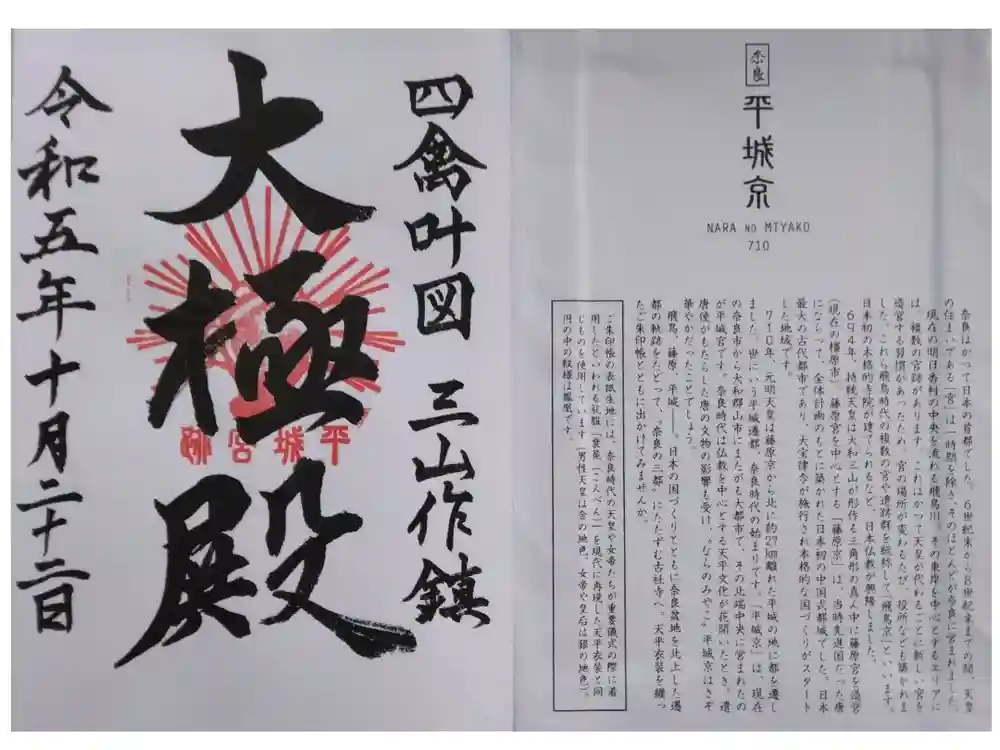 奈良
平城京
NARA NO MIYAKO
710
奈良はかつて日本の首都でした。6世紀末から8世紀末までの間、天皇
の住まいである「宮」は一時期を除き、そのほとんどが奈良に営まれました。
現在の明日香村の中央を流れる飛鳥川。その東岸を中心とするエリアに
は、複数の宮跡があります。これはかつて天皇が代わるごとに新しい宮を
造営する習慣があったため。宮の場所が変わるたび、役所なども築かれま
した。これら飛鳥時代の複数の宮や遺跡群を総称して「飛鳥京」といいます。
日本初の本格的寺院が建てられるなど、日本仏教が興隆しました。
694年、持統天皇は大和三山が形作る三角形の真ん中に藤原宮を造営
(現在の橿原市)。藤原宮を中心とする「藤原京」は、当時先進国だった唐
にならって、全体計画のもとに築かれた日本初の中国式都城でした。日本
最大の古代都市であり、大宝律令が施行され本格的な国づくりがスタート
した地域です。
710年、元明天皇は藤原京から北に約27km離れた平城の地に都を遷し
ました。世にいう平城遷都、奈良時代の始まりです。「平城京」は、現在
の奈良市から大和郡山市にまたがる大都市で、その北端中央に営まれたの
が平城宮です。奈良時代は仏教を中心とする天平文化が花開いたとき。遣
唐使がもたらした唐の文物の影響も受け、“ならのみやこ”平城京はさぞ
華やかだったことでしょう。
飛鳥、藤原、平城――。日本の国づくりとともに奈良盆地を北上した遷
都の軌跡をたどって、“奈良の三都”にたたずむ古社寺へ。天平衣装を纏っ
たご朱印帳とともに出かけてみませんか。
ご朱印帳の表紙生地には、奈良時代の天皇や女帝たちが重要儀式の際に着
用したといわれる礼服「袞冕(こんべん)」を現代に再現した天平衣装と同
じものを使用しています(男性天皇は金の地色、女帝や皇后は銀の地色)。
円の中の紋様は鳳凰です。
四禽叶図 三山作鎮
大極殿
平城宮跡
令和五年十月二十二日